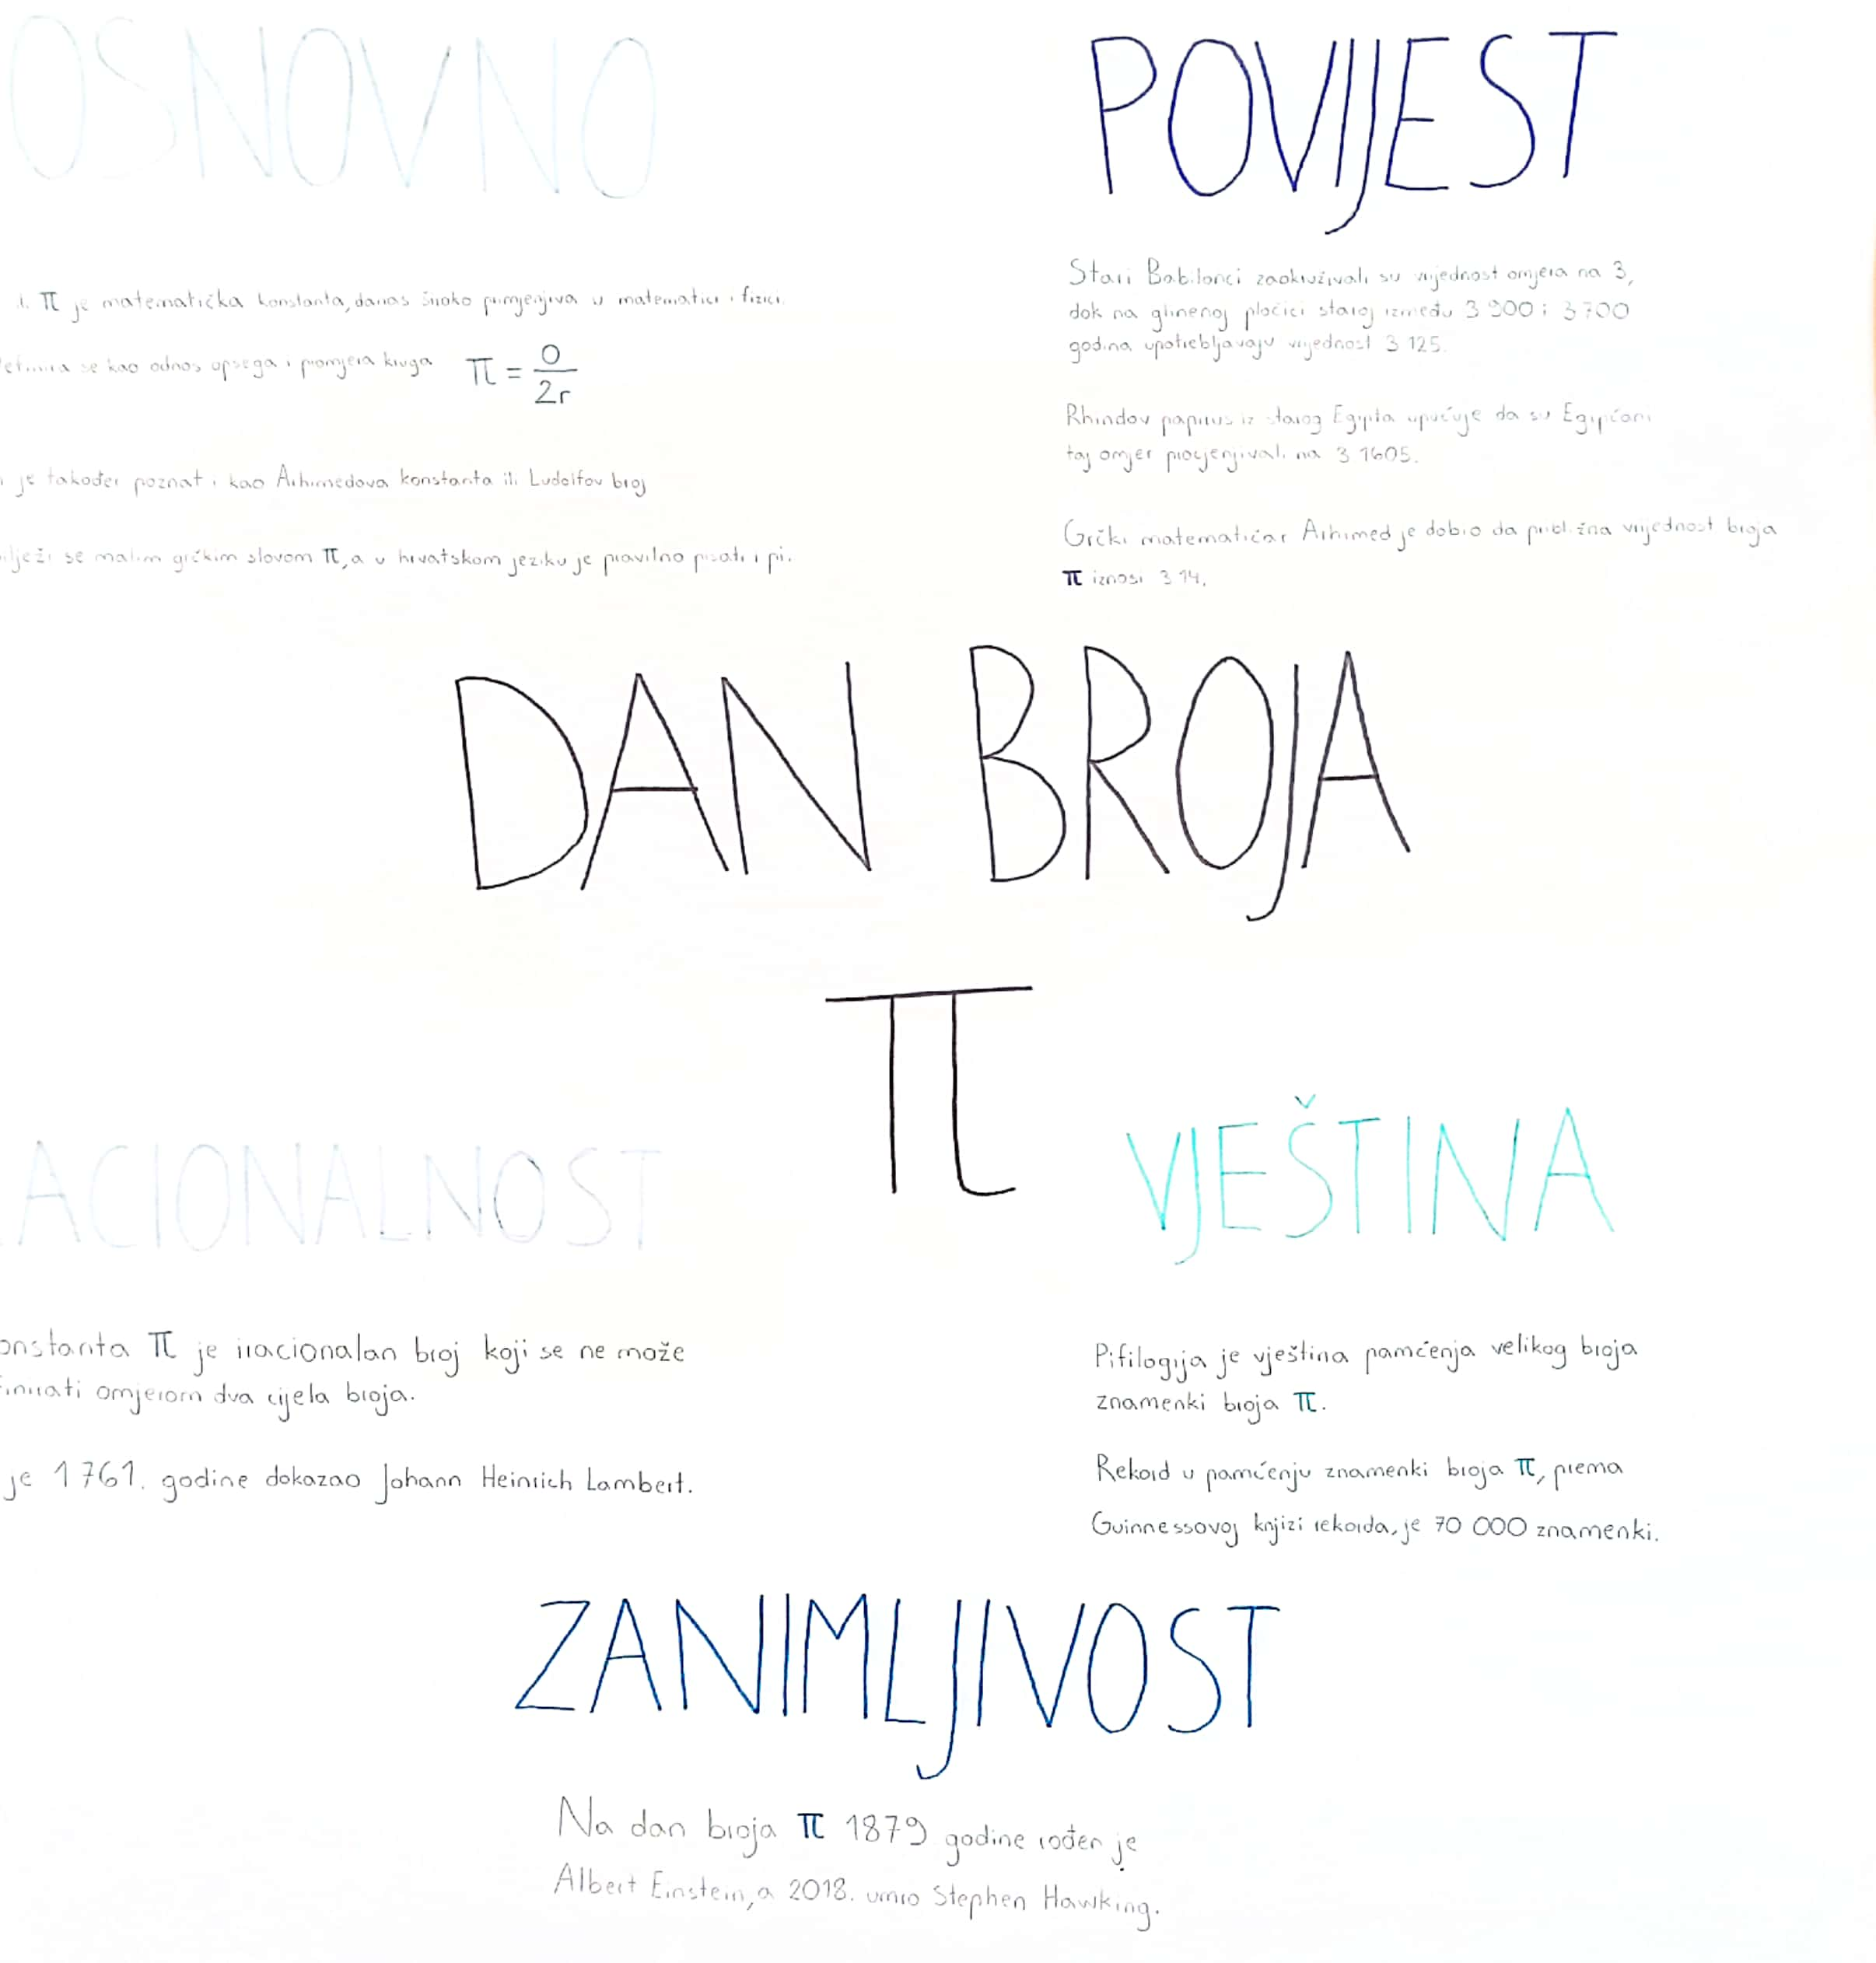 OSNOVNO
π je matematička konstanta, danas široko primjenjiva u matematici i fizici.
se kao odnos opsega i promjera kruga π = O/2r
je također poznat i kao Arhimedova konstanta ili Ludolfov broj
se malim grčkim slovom π, a u hrvatskom jeziku je pravilno pisati i pi.
POVIJEST
Stari Babilonci zaokruživali su vrijednost omjera na 3,
dok na glinenoj pločici staroj između 3 900 i 3 700
godina upotrebljavaju vrijednost 3 125.
Rhindov papirus iz starog Egipta upućuje da su Egipćani
taj omjer procjenjivali na 3 1605.
Grčki matematičar Arhimed je dobio da približna vrijednost broja
π iznosi 3 14.
DAN BROJA
π
ACIONALNOST
onstanta π je iracionalan broj koji se ne može
inirati omjerom dva cijela broja.
je 1761. godine dokazao Johann Heinrich Lambert.
VJEŠTINA
Pifilogija je vještina pamćenja velikog broja
znamenki broja π.
Rekord u pamćenju znamenki broja π, prema
Guinnessovoj knjizi rekorda, je 70 000 znamenki.
ZANIMLJIVOST
Na dan broja π 1879 godine rođen je
Albert Einstein, a 2018. umro Stephen Hawking.